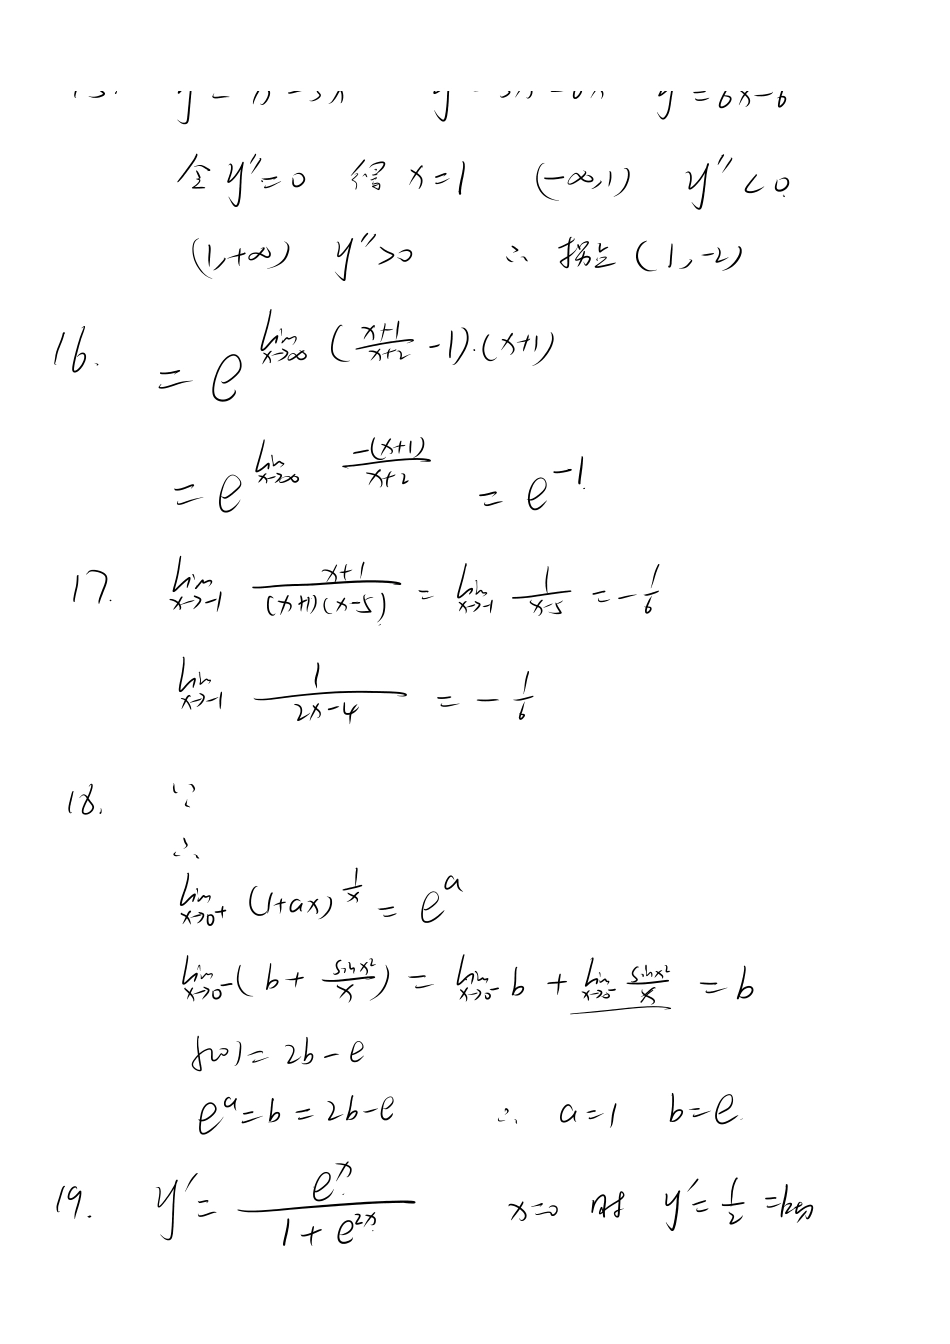 y''=6x-6
令 y''=0 得 x=1 (-∞,1) y''<0
(1,+∞) y''>0 ∴ 拐点 (1,-2)
16. = e^{lim_{x→∞} (\frac{x+1}{x+2} -1)·(x+1)}
= e^{lim_{x→∞} \frac{-(x+1)}{x+2}} = e^{-1}
17. lim_{x→-1} \frac{x+1}{(x+1)(x-5)} = lim_{x→-1} \frac{1}{x-5} = -\frac{1}{6}
lim_{x→-1} \frac{1}{2x-4} = -\frac{1}{6}
18. ∵
∴
lim_{x→0^+} (1+ax)^{\frac{1}{x}} = e^a
lim_{x→0^-} (b + \frac{sinx^2}{x}) = lim_{x→0^-} b + lim_{x→0^-} \frac{sinx^2}{x} = b
f(0) = 2b - e
e^a = b = 2b-e ∴ a=1 b=e
19. y' = \frac{e^x}{1+e^{2x}} x=0 时 y' = \frac{1}{2} = k切